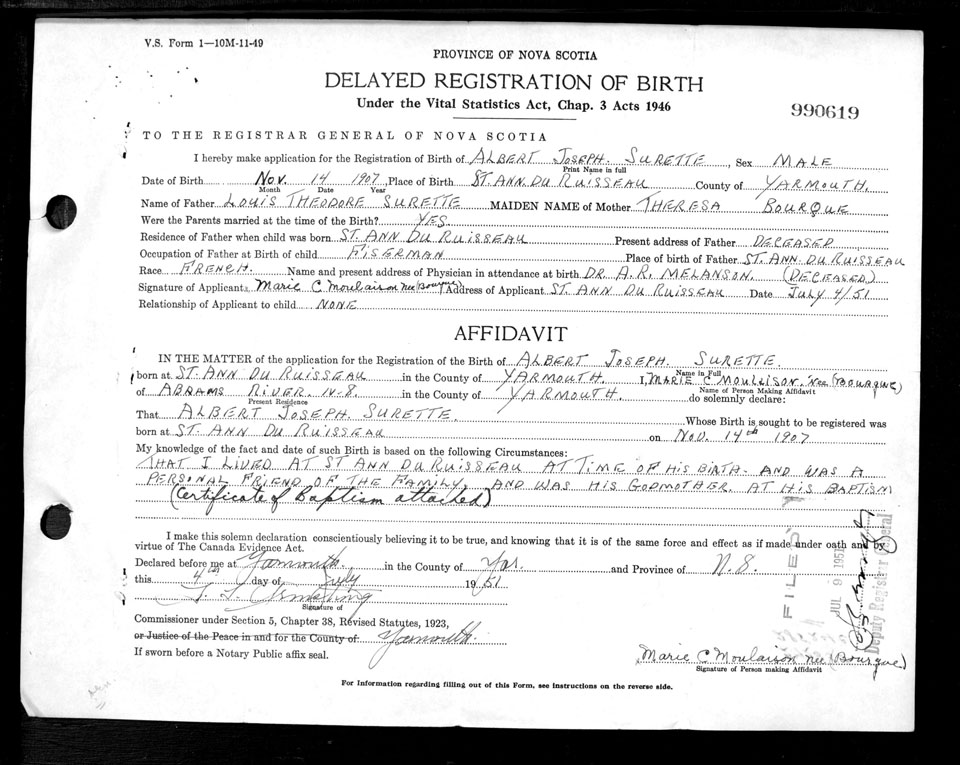 V.S. Form 1—10M-11-49
PROVINCE OF NOVA SCOTIA
DELAYED REGISTRATION OF BIRTH
Under the Vital Statistics Act, Chap. 3 Acts 1946
990619
TO THE REGISTRAR GENERAL OF NOVA SCOTIA
I hereby make application for the Registration of Birth of ALBERT JOSEPH. SURETTE, Sex MALE
Print Name in full
Date of Birth Nov. 14 1907, Place of Birth ST. ANN DU RUISSEAU County of YARMOUTH.
Month Date Year
Name of Father LOUIS THEODORE SURETTE MAIDEN NAME of Mother THERESA BOURQUE
Were the Parents married at the time of the Birth? YES
Residence of Father when child was born ST. ANN DU RUISSEAU Present address of Father DECEASED
Occupation of Father at Birth of child FISERMAN Place of birth of Father ST. ANN DU RUISSEAU
Race FRENCH. Name and present address of Physician in attendance at birth DR. A.R. MELANSON. (DECEASED)
Signature of Applicant Marie C Moulaison nee (Bourque) Address of Applicant ST. ANN DU RUISSEAU Date July 4/51
Relationship of Applicant to child NONE
AFFIDAVIT
IN THE MATTER of the application for the Registration of the Birth of ALBERT JOSEPH. SURETTE.
Name in Full
born at ST. ANN DU RUISSEAU in the County of YARMOUTH. I, MARIE C MOULLISON. nee (BOURQUE)
Name of Person Making Affidavit
of ABRAMS RIVER. N.S. in the County of YARMOUTH. do solemnly declare:
Present Residence
That ALBERT JOSEPH. SURETTE. Whose Birth is sought to be registered was
born at ST. ANN DU RUISSEAU on Nov. 14th 1907
My knowledge of the fact and date of such Birth is based on the following Circumstances:
THAT I LIVED AT ST ANN DU RUISSEAU AT TIME OF HIS BIRTH. AND WAS A
PERSONAL FRIEND OF THE FAMILY, AND WAS HIS GODMOTHER. AT HIS BAPTISM
(Certificate of Baptism attached)
I make this solemn declaration conscientiously believing it to be true, and knowing that it is of the same force and effect as if made under oath and by
virtue of The Canada Evidence Act.
Declared before me at Yarmouth. in the County of Yar. and Province of N.S.
this 4th day of July 1951
Signature of
Commissioner under Section 5, Chapter 38, Revised Statutes, 1923,
or Justice of the Peace in and for the County of Yarmouth.
If sworn before a Notary Public affix seal.
FILED
JUL 9 1951
Deputy Registrar General
Marie C Moulaison nee (Bourque)
Signature of Person making Affidavit
For Information regarding filling out of this Form, see instructions on the reverse side.